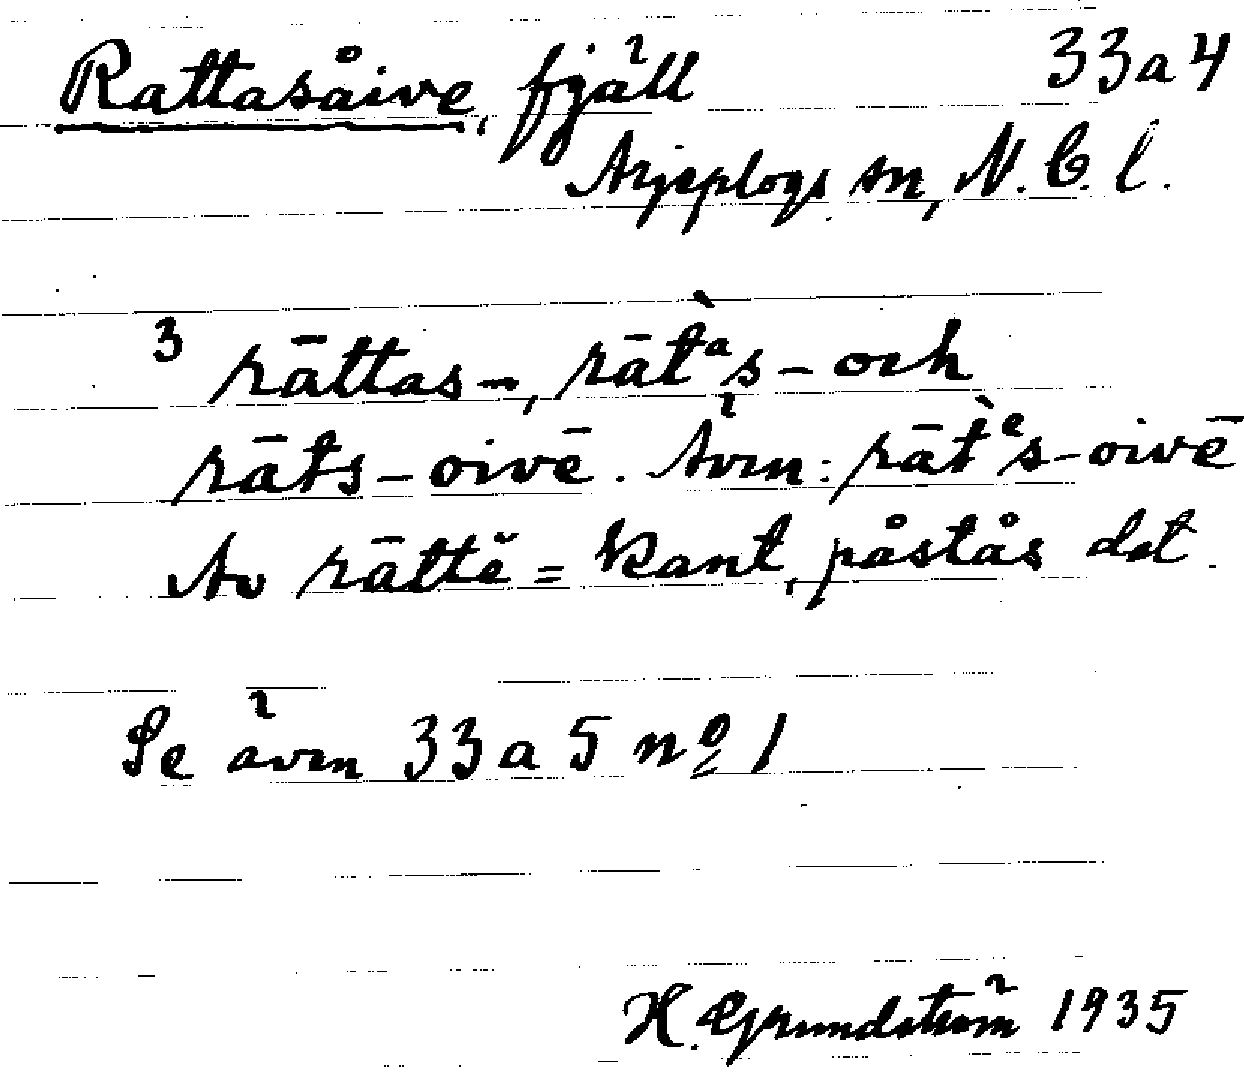 Rattasåive, fjäll 33a4
Arjeplogs sn, N. B. l.
³ rāttas-, rāt̀ᵃs- och
rāts-oivē. Även: rāt̀ᵉs-oivē
Av rāttĕ = kant, påstås det.
Se även 33a5 nº 1
H. Grundström 1935